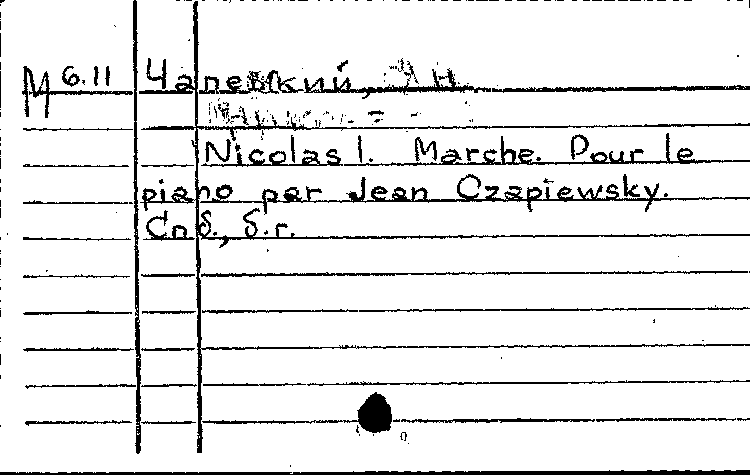 М 6.11 Чапевский, Я Н
Nicolas I. Marche. Pour le
piano par Jean Czapiewsky.
Спб., б.г.